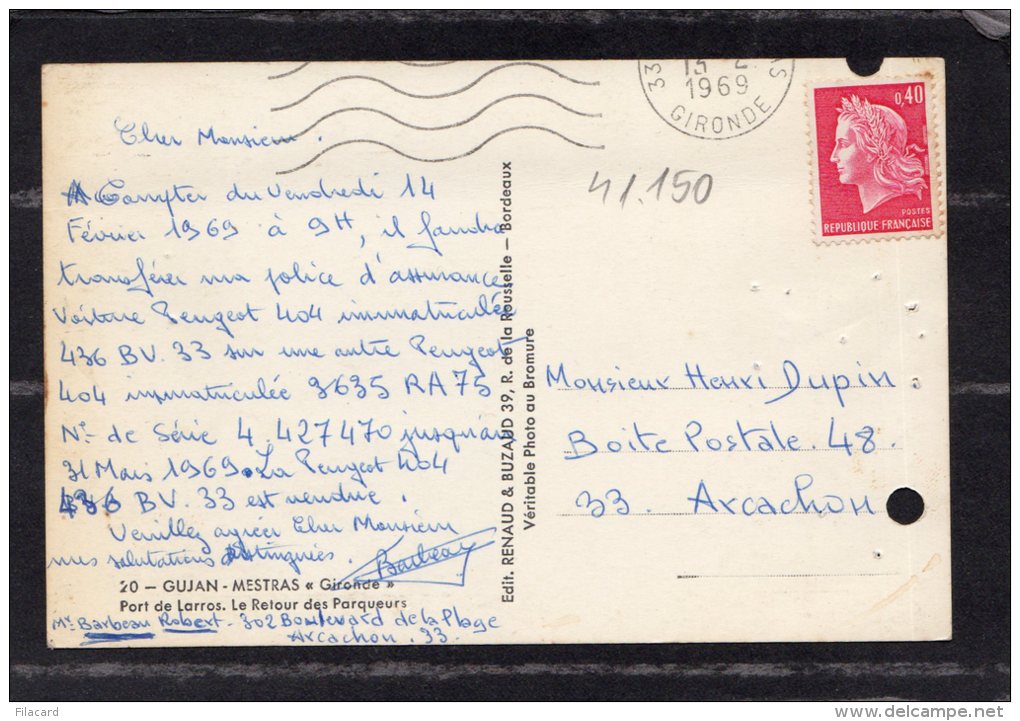 33
13 - 2.
1969
GIRONDE
0,40
POSTES
REPUBLIQUE FRANÇAISE
41.150
Cher Monsieur.
A Compter du Vendredi 14
Février 1969 à 9H, il faudra
transférer ma police d'assurance
Voiture Peugeot 404 immatriculée
436 BV. 33 sur une autre Peugeot
404 immatriculée 3635 RA 75
N° de Série 4.427470 jusqu'au
31 Mars 1969. La Peugeot 404
436 BV. 33 est vendue.
Veuillez agréer Cher Monsieur
mes salutations distinguées.
Barbeau
20 — GUJAN - MESTRAS « Gironde »
Port de Larros. Le Retour des Parqueurs
Mr Barbeau Robert - 302 Boulevard de la Plage
Arcachon. 33.
Edit. RENAUD & BUZAUD 39, R. de la Rousselle — Bordeaux
Véritable Photo au Bromure
Monsieur Henri Dupin
Boite Postale. 48.
33. Arcachon
Filacard